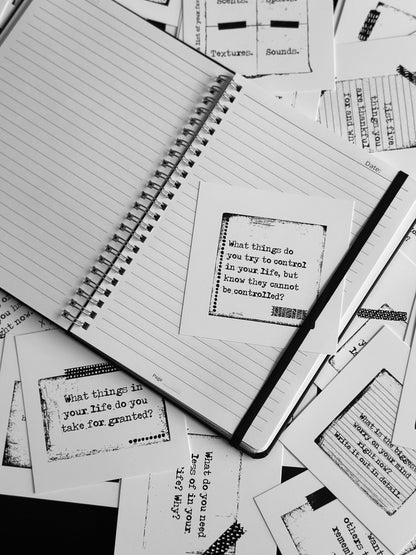 Scents.
Textures.
Sounds.
list of your fav
List five
things you
are thankful
for and wh
Date:
What things do
you try to control
in your life, but
know they cannot
be controlled?
Page
What things in
your life do you
take for granted?
right now
What is the biggest
worry on your mind
right now?
Write it out in detail.
What do you need
less of in your
life? Why?
Want
others
remem